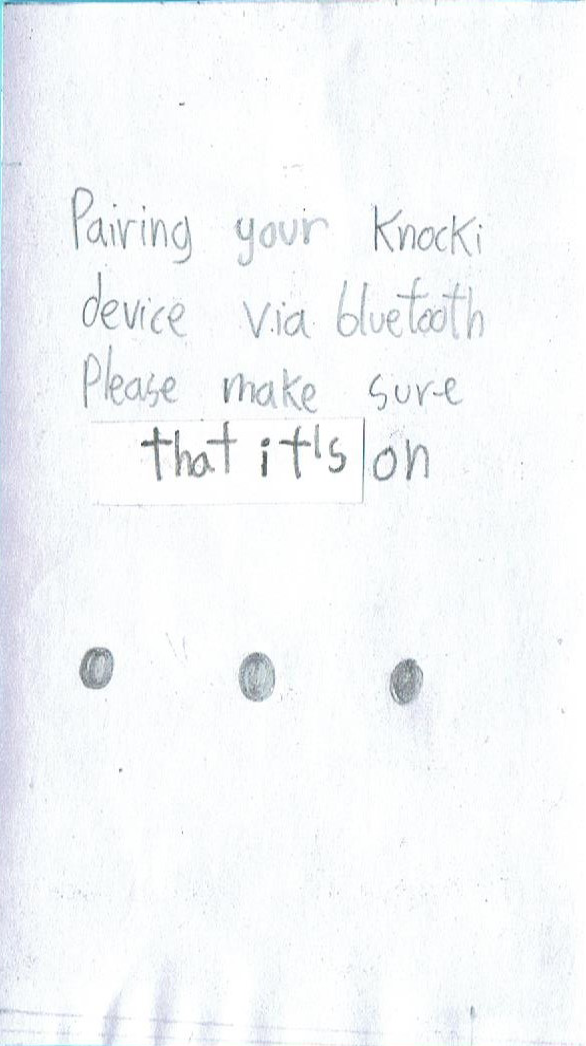 Pairing your Knocki
device via bluetooth
Please make sure
that it's on